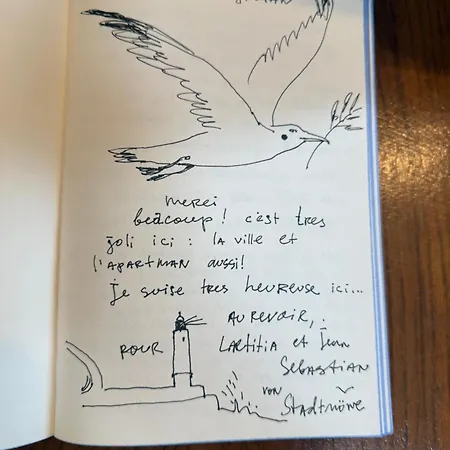 merci
beacoup! c'est tres
joli ici : la ville et
l'apartman aussi!
je suise tres heureuse ici...
Au revoir,
pour Laetitia et Jean
Sebastian
von Stadtmöwe